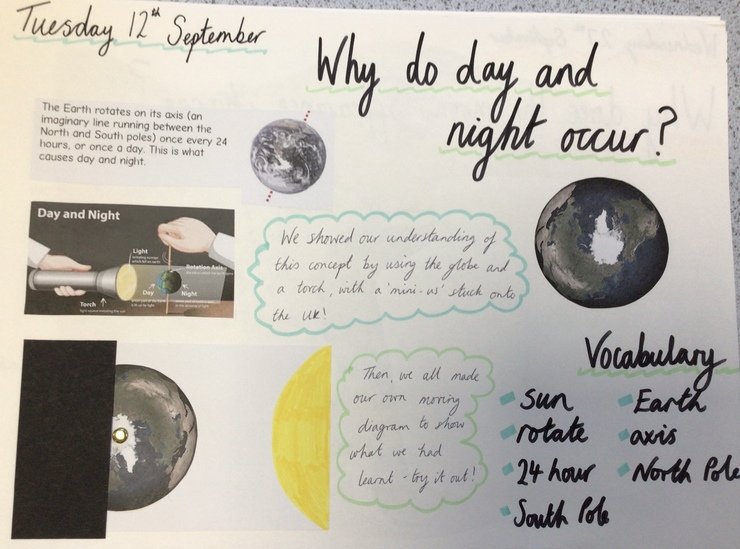 Tuesday 12th September
Why do day and
night occur?
The Earth rotates on its axis (an
imaginary line running between the
North and South poles) once every 24
hours, or once a day. This is what
causes day and night.
Day and Night
Light
Rotation Axis
Day
Night
Torch
We showed our understanding of
this concept by using the globe and
a torch, with a 'mini-us' stuck onto
the UK!
Then, we all made
our own moving
diagram to show
what we had
learnt - try it out!
Vocabulary
Sun
Earth
rotate
axis
24 hour
North Pole
South Pole